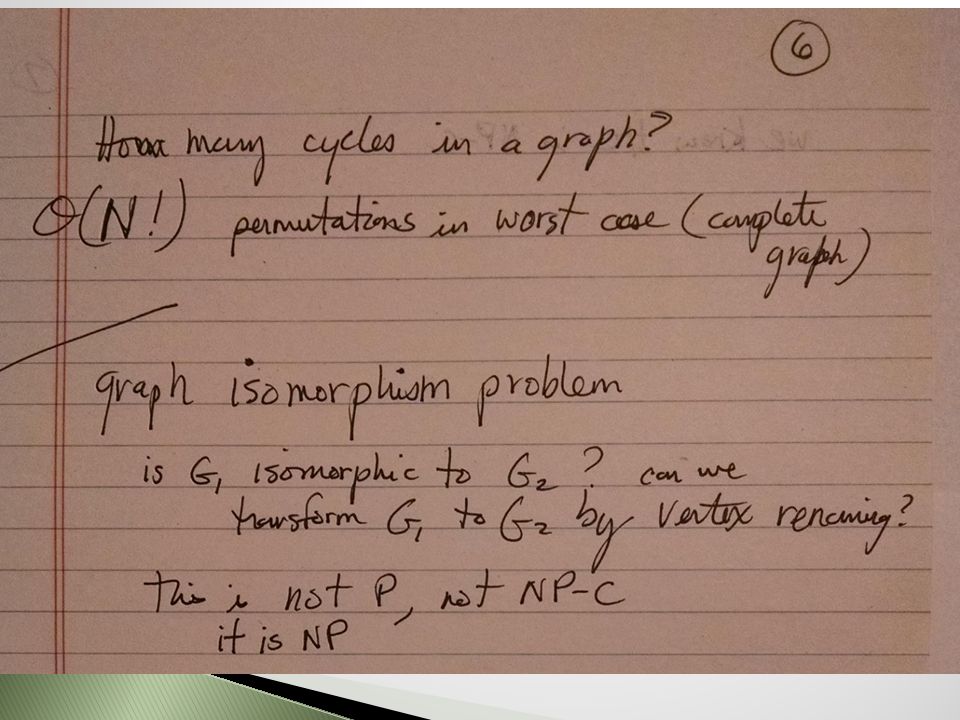 6
How many cycles in a graph?
O(N!) permutations in worst case (complete
graph)
graph isomorphism problem
is G₁ isomorphic to G₂? can we
transform G₁ to G₂ by vertex renaming?
this is not P, not NP-C
it is NP